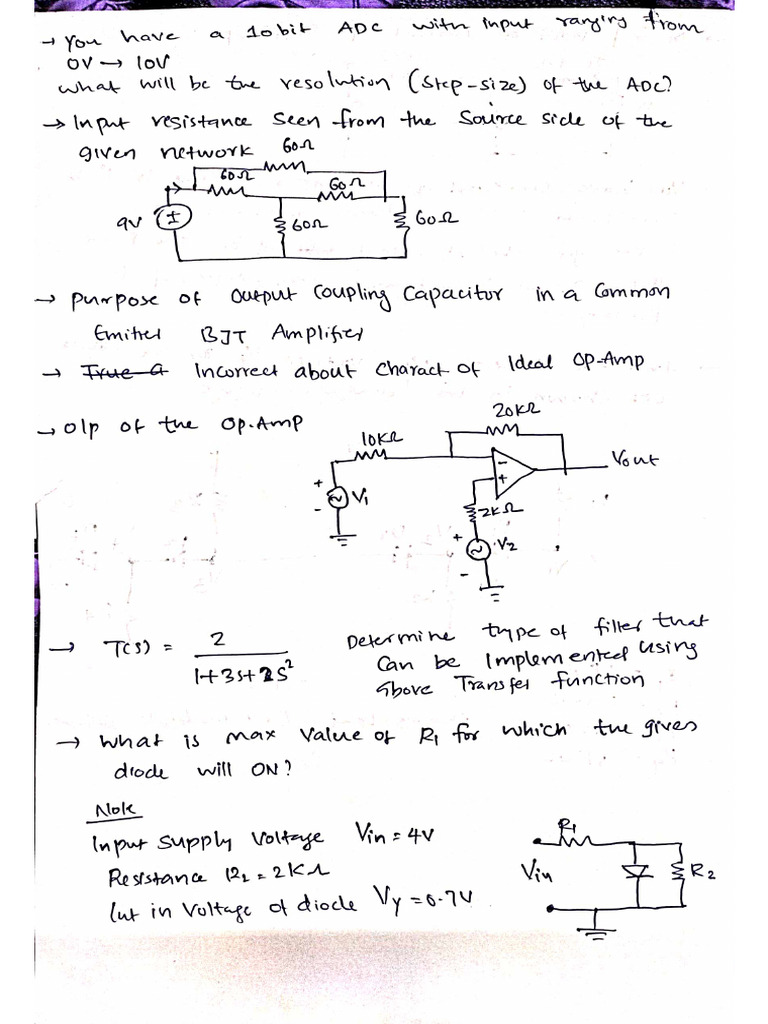 → You have a 10bit ADC with input ranging from
0V → 10V
what will be the resolution (step-size) of the ADC?
→ Input resistance seen from the source side of the
given network
60Ω
60Ω
60Ω
9V
60Ω
60Ω
→ Purrpose of output coupling capacitor in a common
Emitter BJT Amplifier
→ True a Incorrect about charact of Ideal Op-Amp
→ O/p of the Op.Amp
20KΩ
10KΩ
Vout
V1
2KΩ
V2
→ T(s) = 2 / 1+3s+2s²
Determine type of filter that
can be implemented using
above Transfer function
→ what is max value of R1 for which the given
diode will ON?
Note
Input supply voltage Vin = 4V
Resistance R2 = 2KΩ
Cut in voltage of diode Vy = 0.7V
R1
Vin
R2